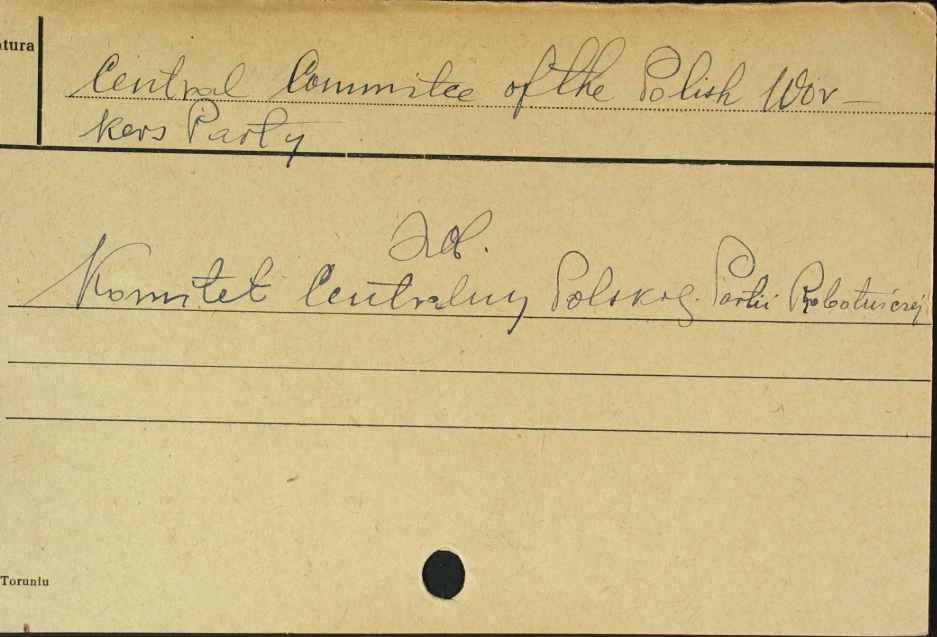 tura
Central Commitee of the Polish Wor-
kers Party
zob.
Komitet Centralny Polskiej Partii Robotniczej
Toruniu